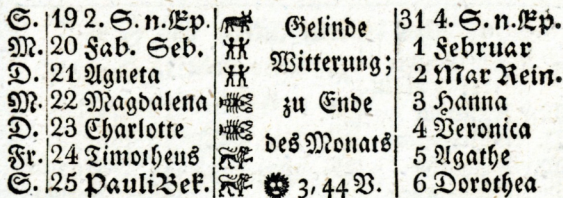 S. 19 2. S. n. Ep. Gelinde 31 4. S. n. Ep.
M. 20 Fab. Seb. Witterung; 1 Februar
D. 21 Agneta 2 Mar Rein.
M. 22 Magdalena zu Ende 3 Hanna
D. 23 Charlotte des Monats 4 Veronica
Fr. 24 Timotheus 5 Agathe
S. 25 Pauli Bek. 3, 44 V. 6 Dorothea